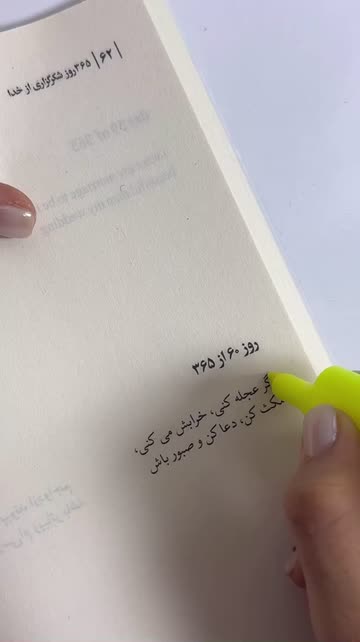 |۶۲| ۳۶۵ روز شکرگزاری از خدا
روز ۶۰ از ۳۶۵
اگر عجله کنی، خرابش می کنی،
مکث کن، دعا کن و صبور باش